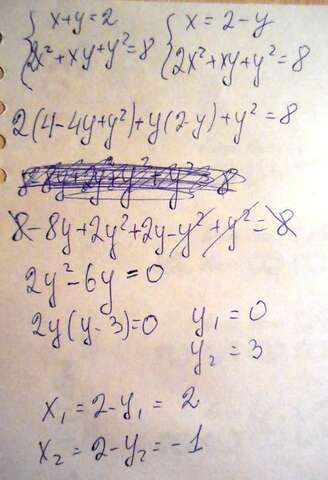 { x+y=2 { x=2-y
{ 2x²+xy+y²=8 { 2x²+xy+y²=8
2(4-4y+y²)+y(2-y)+y²=8
8-8y+2y²+2y-y²+y²=8
2y²-6y=0
2y(y-3)=0 y₁=0
y₂=3
x₁=2-y₁=2
x₂=2-y₂=-1